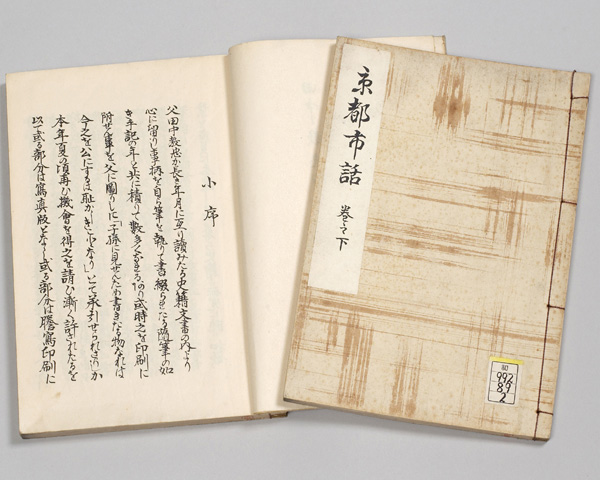 小序
父田中教忠が長き年月に亙り讀みたる史籍文書の内より
心に留りし事柄を自ら筆を執りて書綴られたる隨筆の如
き手記の年と共に積りて數多くなれるあり或時之を印刷に
附せん事を父に圖りしに「子孫に見せんため書きたる物なれば
今之を公にするは恥かしきことなり」とて承引せられざりしか
本年夏の頃再び機會を得之を請ひ漸く許されたるを
以て或る部分は寫眞版となし或る部分は謄寫印刷に
京都市話 巻之下
992
89
2